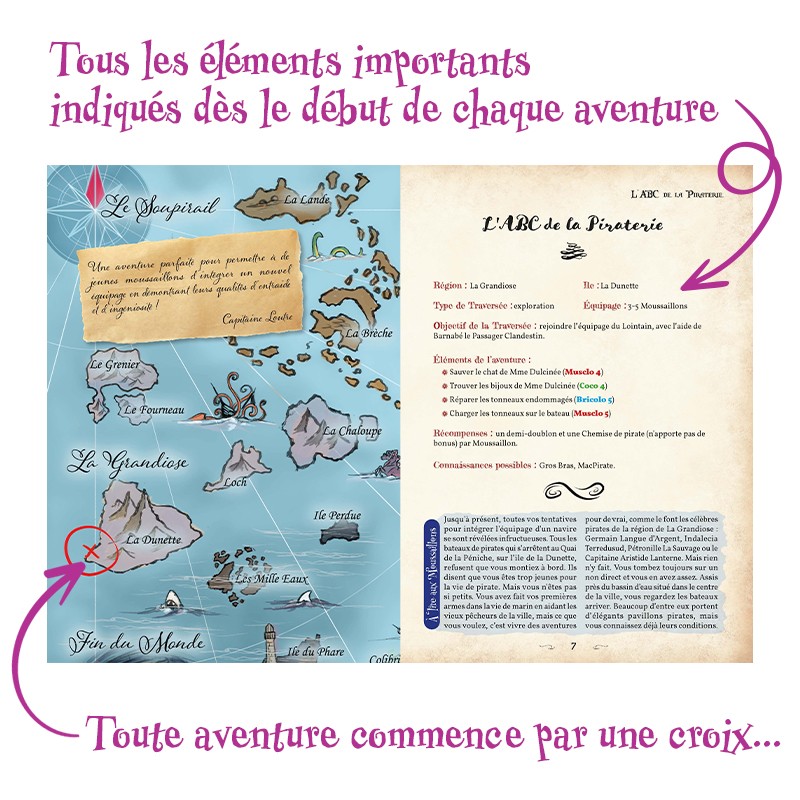 Tous les éléments importants
indiqués dès le début de chaque aventure
Le Soupirail
La Lande
Une aventure parfaite pour permettre à de
jeunes moussaillons d'intégrer un nouvel
équipage en démontrant leurs qualités d'entraide
et d'ingéniosité !
Capitaine Loutre
La Brèche
Le Grenier
Le Fourneau
La Chaloupe
La Grandiose
Loch
Ile Perdue
La Dunette
Les Mille Eaux
Fin du Monde
Ile du Phare
Colibri
L'ABC de la Piraterie
L'ABC de la Piraterie
Région : La Grandiose
Ile : La Dunette
Type de Traversée : exploration
Équipage : 3-5 Moussaillons
Objectif de la Traversée : rejoindre l'équipage du Lointain, avec l'aide de
Barnabé le Passager Clandestin.
Éléments de l'aventure :
Sauver le chat de Mme Dulcinée (Musclo 4)
Trouver les bijoux de Mme Dulcinée (Coco 4)
Réparer les tonneaux endommagés (Bricolo 5)
Charger les tonneaux sur le bateau (Musclo 5)
Récompenses : un demi-doublon et une Chemise de pirate (n'apporte pas de
bonus) par Moussaillon.
Connaissances possibles : Gros Bras, MacPirate.
À lire aux Moussaillons
Jusqu'à présent, toutes vos tentatives
pour intégrer l'équipage d'un navire
se sont révélées infructueuses. Tous les
bateaux de pirates qui s'arrêtent au Quai
de la Péniche, sur l'île de la Dunette,
refusent que vous montiez à bord. Ils
disent que vous êtes trop jeunes pour
la vie de pirate. Mais vous n'êtes pas
si petits. Vous avez fait vos premières
armes dans la vie de marin en aidant les
vieux pêcheurs de la ville, mais ce que
vous voulez, c'est vivre des aventures
pour de vrai, comme le font les célèbres
pirates de la région de La Grandiose :
Germain Langue d'Argent, Indalecia
Terredusud, Pétronille La Sauvage ou le
Capitaine Aristide Lanterne. Mais rien
n'y fait. Vous tombez toujours sur un
non direct et vous en avez assez. Assis
près du bassin d'eau situé dans le centre
de la ville, vous regardez les bateaux
arriver. Beaucoup d'entre eux portent
d'élégants pavillons pirates, mais
vous connaissez déjà leurs conditions.
7
Toute aventure commence par une croix...